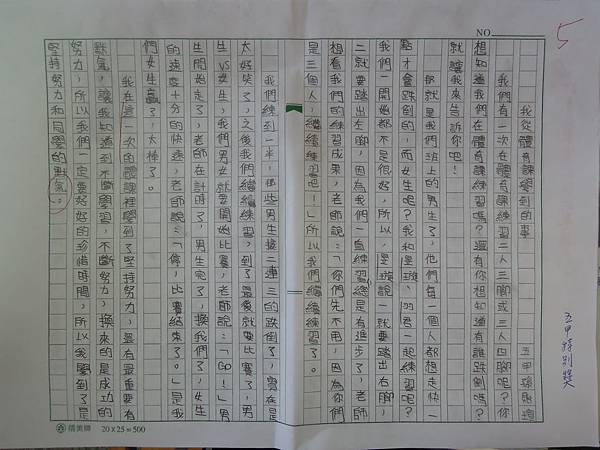 NO.
5
五甲特別獎
我從體育課學到的事
五甲
我們有一次在體育課練習二人三腳或三人四腳呢?你
想知道我們在體育課練習嗎?還有你想知道有誰跌倒嗎?
就讓我來告訴你吧!
那就是我們班上的男生了,他們每一個人都想走快一
點才會跌倒的,而女生呢?我和 、羽君一起練習呢?
我們一開始都不是很好,所以, 璇說一就要踏出右腳,
二就要踏出左腳,因為我們一直練習總是有進步了,老師
想看我們的練習成果,老師說:「你們先不用,因為你們
是三個人,繼續練習吧!」所以我們繼續練習了。
我們練到一半,那些男生接二連三的跌倒了,實在是
太好笑了,之後我們繼續練習,到了最後就要比賽了,男
生VS女生,我們男女就要開始比賽,老師說:「GO!」男
生開始走了,老師在計時了,男生完了,換我們了,女生
的速度十分的快速,老師說:「停,比賽結束了。」是我
們女生贏了,太棒了。
我在這一次的體課裡學到了堅持努力,還有最重要有
默氣,讓我知道到不斷學習,不斷努力,換來的是成功的
努力,所以我們一定要好好的珍惜時間,所以我學到了是
堅持努力和同學的默氣。
精美牌 20X25=500